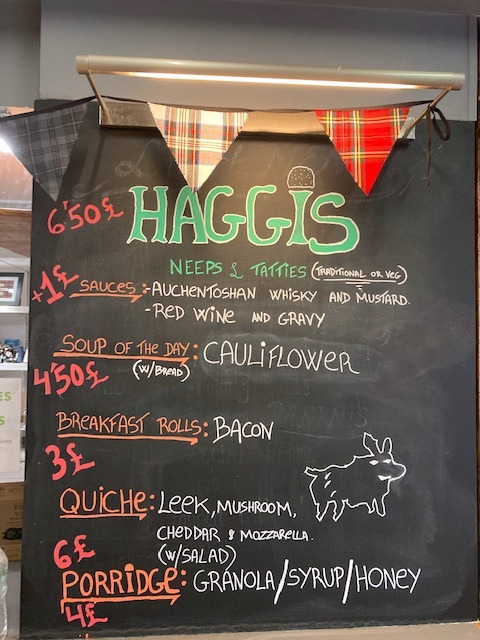 6'50£ HAGGiS
NEEPS & TATTIES (TRADITIONAL OR VEG)
+1£ SAUCES :-AUCHENTOSHAN WHISKY AND MUSTARD.
-RED WINE AND GRAVY
SOUP OF THE DAY: CAULiFLOWER
(W/BREAD)
4'50£
BREAKFAST ROLLS: BACON
3£
QUiCHE: LEEK, MUSHROOM,
CHEDDAR & MOZZARELLA.
(W/SALAD)
6£
PORRiDGE: GRANOLA/SYRUP/HONEY
4£